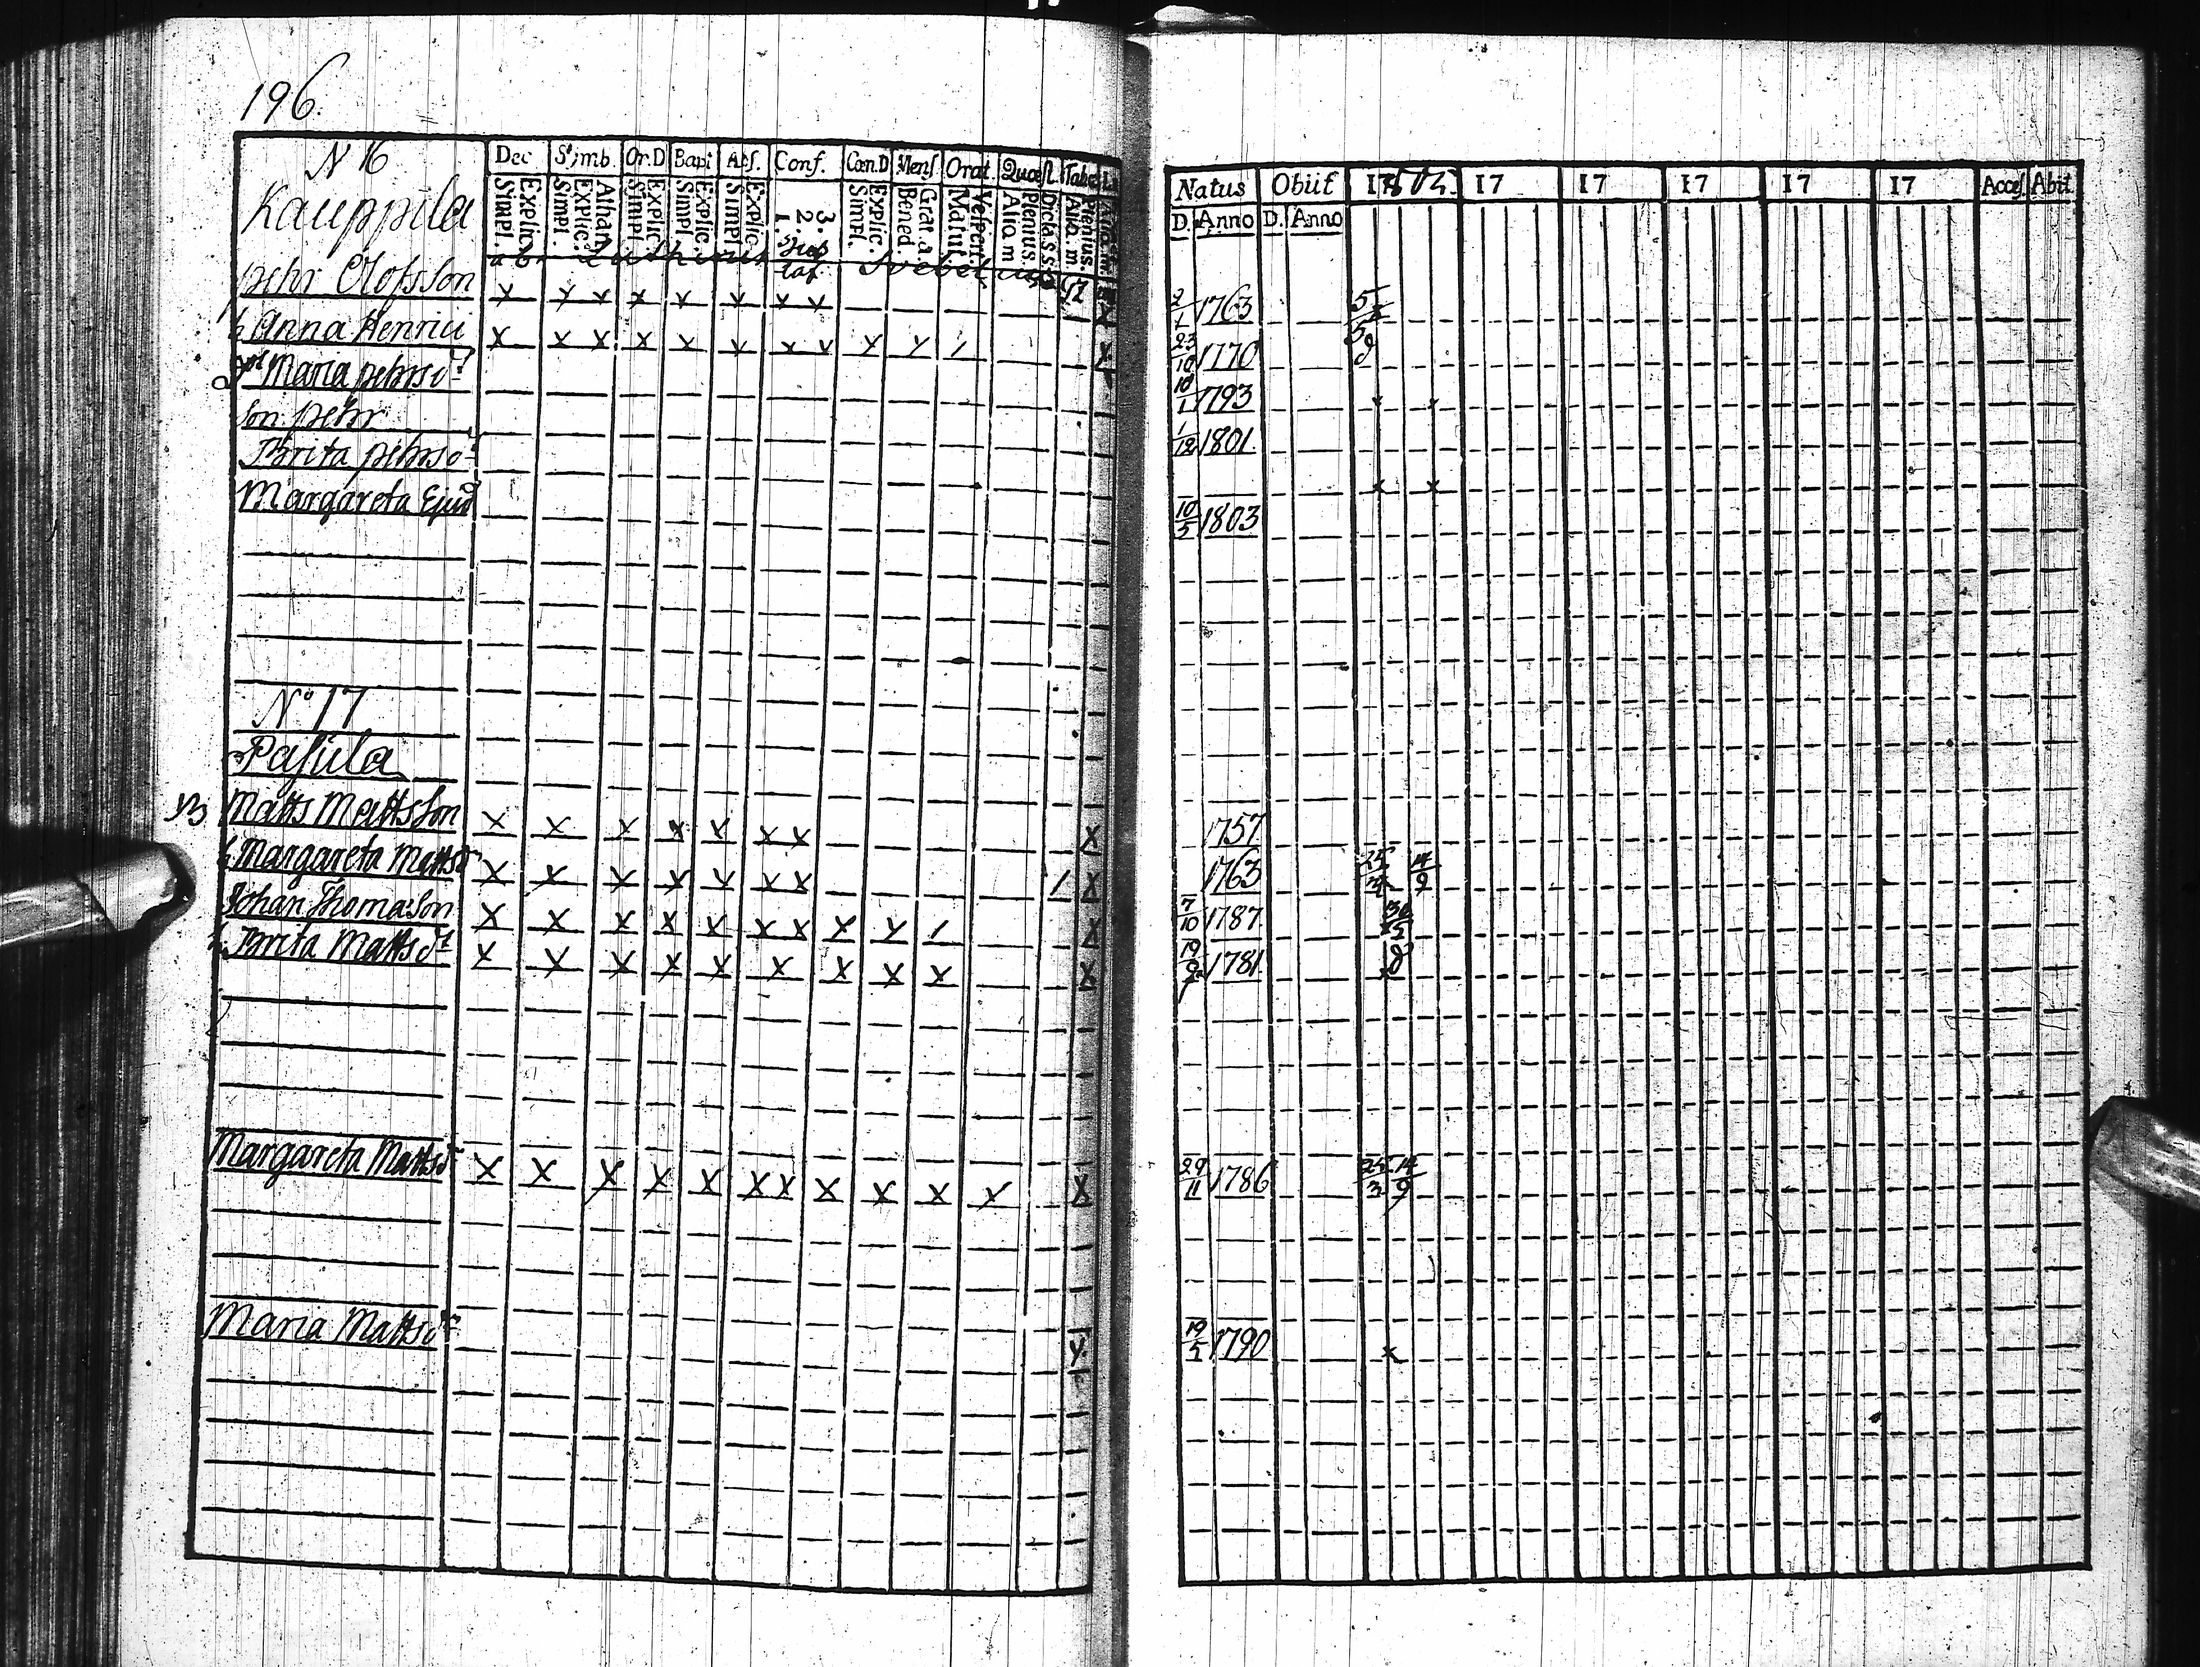 196.
N 16
Kauppila
Dec. Simb. Or.D Bapt Abs. Conf. Cœn.D Mens. Orat. Quæst. Tabe
Simpl. Explic. Simpl. Explic. Athan. Simpl. Explic. Simpl. Explic. Simpl. Explic. 1. 2. 3. Simpl. Explic. Bened. Grat. a. Matut. Vespert. Aliq. m. Plenius. Dicta S. S. Aliq. m. Plenius.
Pehr Olofsson x x x x x x x x
h Anna Henrici x x x x x x x x x y /
Maria pehrsd
Son pehr
Brita pehrsd
Margareta Ejusd
No 17
Pasula
Matts Mattsson x x x x x x x x
h Margareta Mattsd x x x x x x x / x
Johan Thomasson x x x x x x x x y / x
h Brita Mattsd x x x x x x x x x x
Margareta Mattsd x x x x x x x x x x x x
Maria Mattsd
Natus Obiit 1804. 17 17 17 17 17 Acces. Abit
D. Anno D. Anno
2/1 1763
23/10 1770
18/1 1793 x x
1/12 1801.
x x
10/5 1803
1757
1763 25/3 14/9
7/10 1787.
19/9 1781.
29/11 1786 25/3 14/9
1790 x